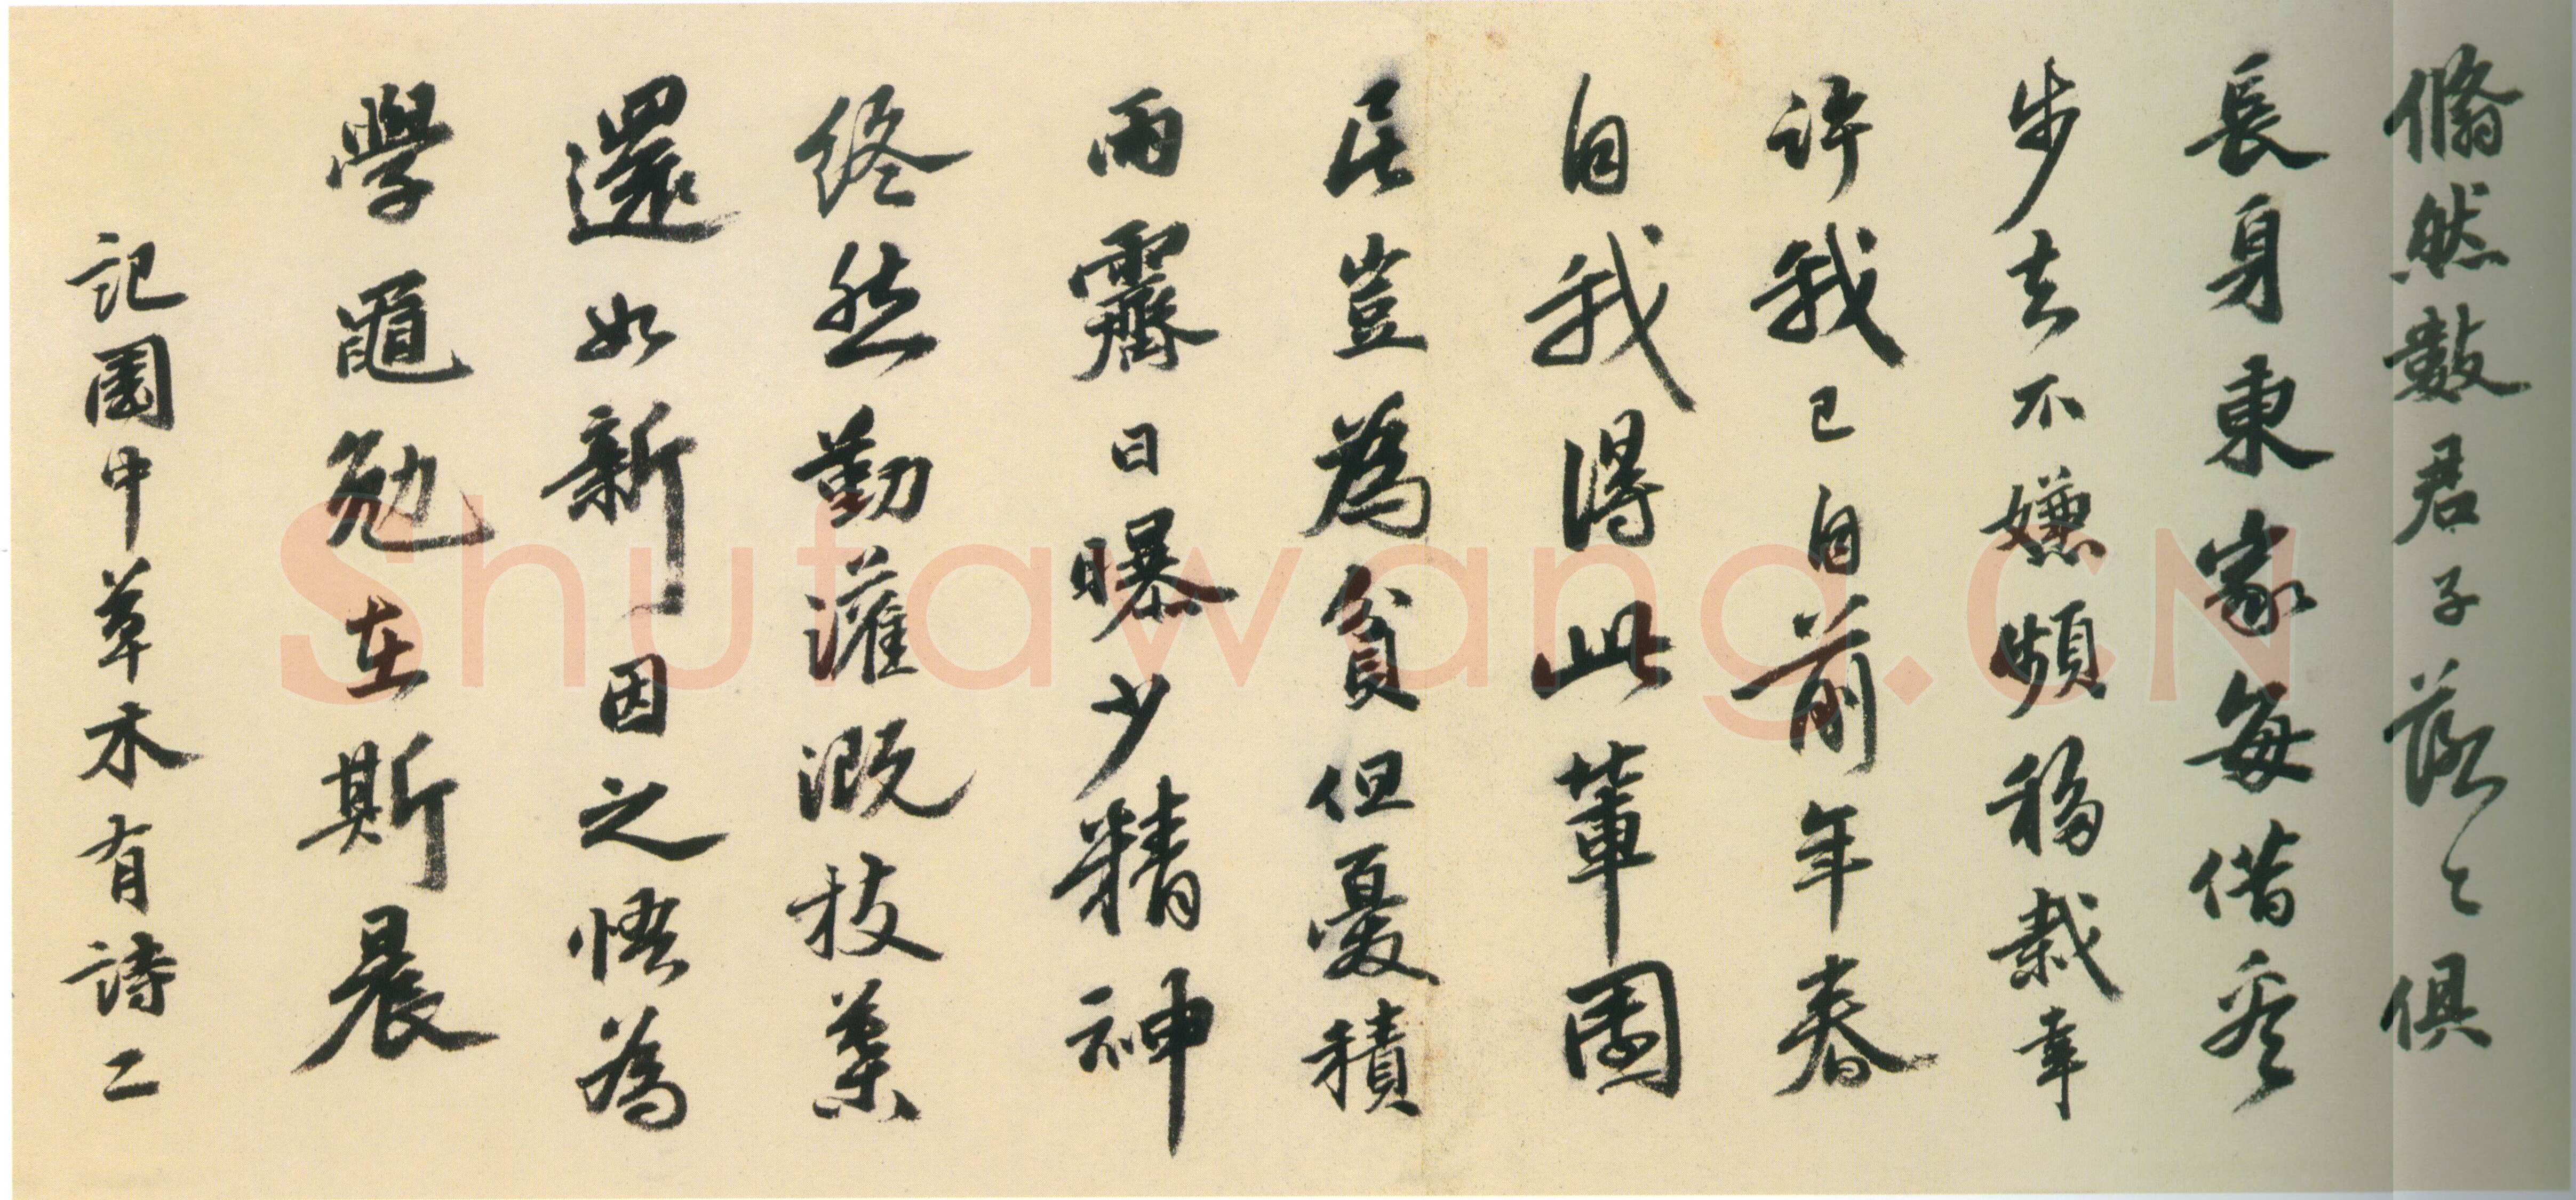 翛然數君子落〻俱
長身東家每借看
步去不嫌頻移栽幸
許我已自前年春
自我得此輩園
居豈為貧但憂積
雨霽日曝少精神
終然勤灌溉枝葉
還如新因之悟為
學黽勉在斯晨
記園中草木有詩二
Shufawang.CN